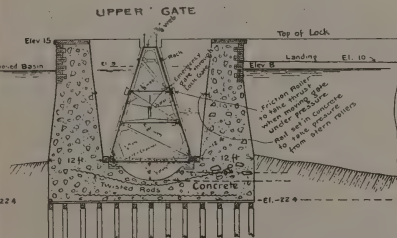 UPPER GATE
Elev 15
Top of Lock
Landing
El. 10
Basin
El. 9
Elev 8
Rack
Emergency
gate through
Friction Roller
to take thrust
when moving gate
under pressure
Rail set in concrete
to take pressure
from stern rollers
12 ft
12 ft
Twisted Rods
Concrete
-22 4
-El.-22 4